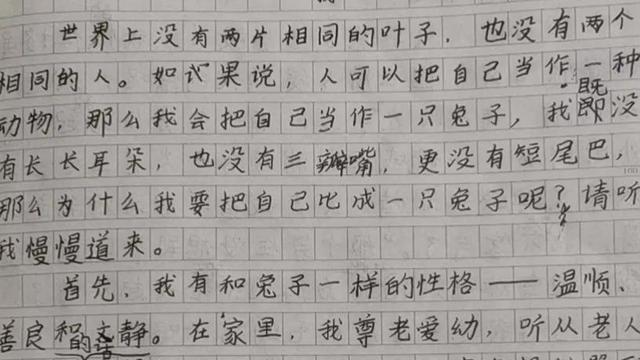 世界上没有两片相同的叶子，也没有两个
相同的人。如式果说，人可以把自己当作一种
动物，那么我会把自己当作一只兔子，我既即没
有长长耳朵，也没有三瓣嘴，更没有短尾巴，
那么为什么我要把自己比成一只兔子呢？请听
我慢慢道来。
首先，我有和兔子一样的性格——温顺、
善良和文静。在家里，我尊老爱幼，听从老人